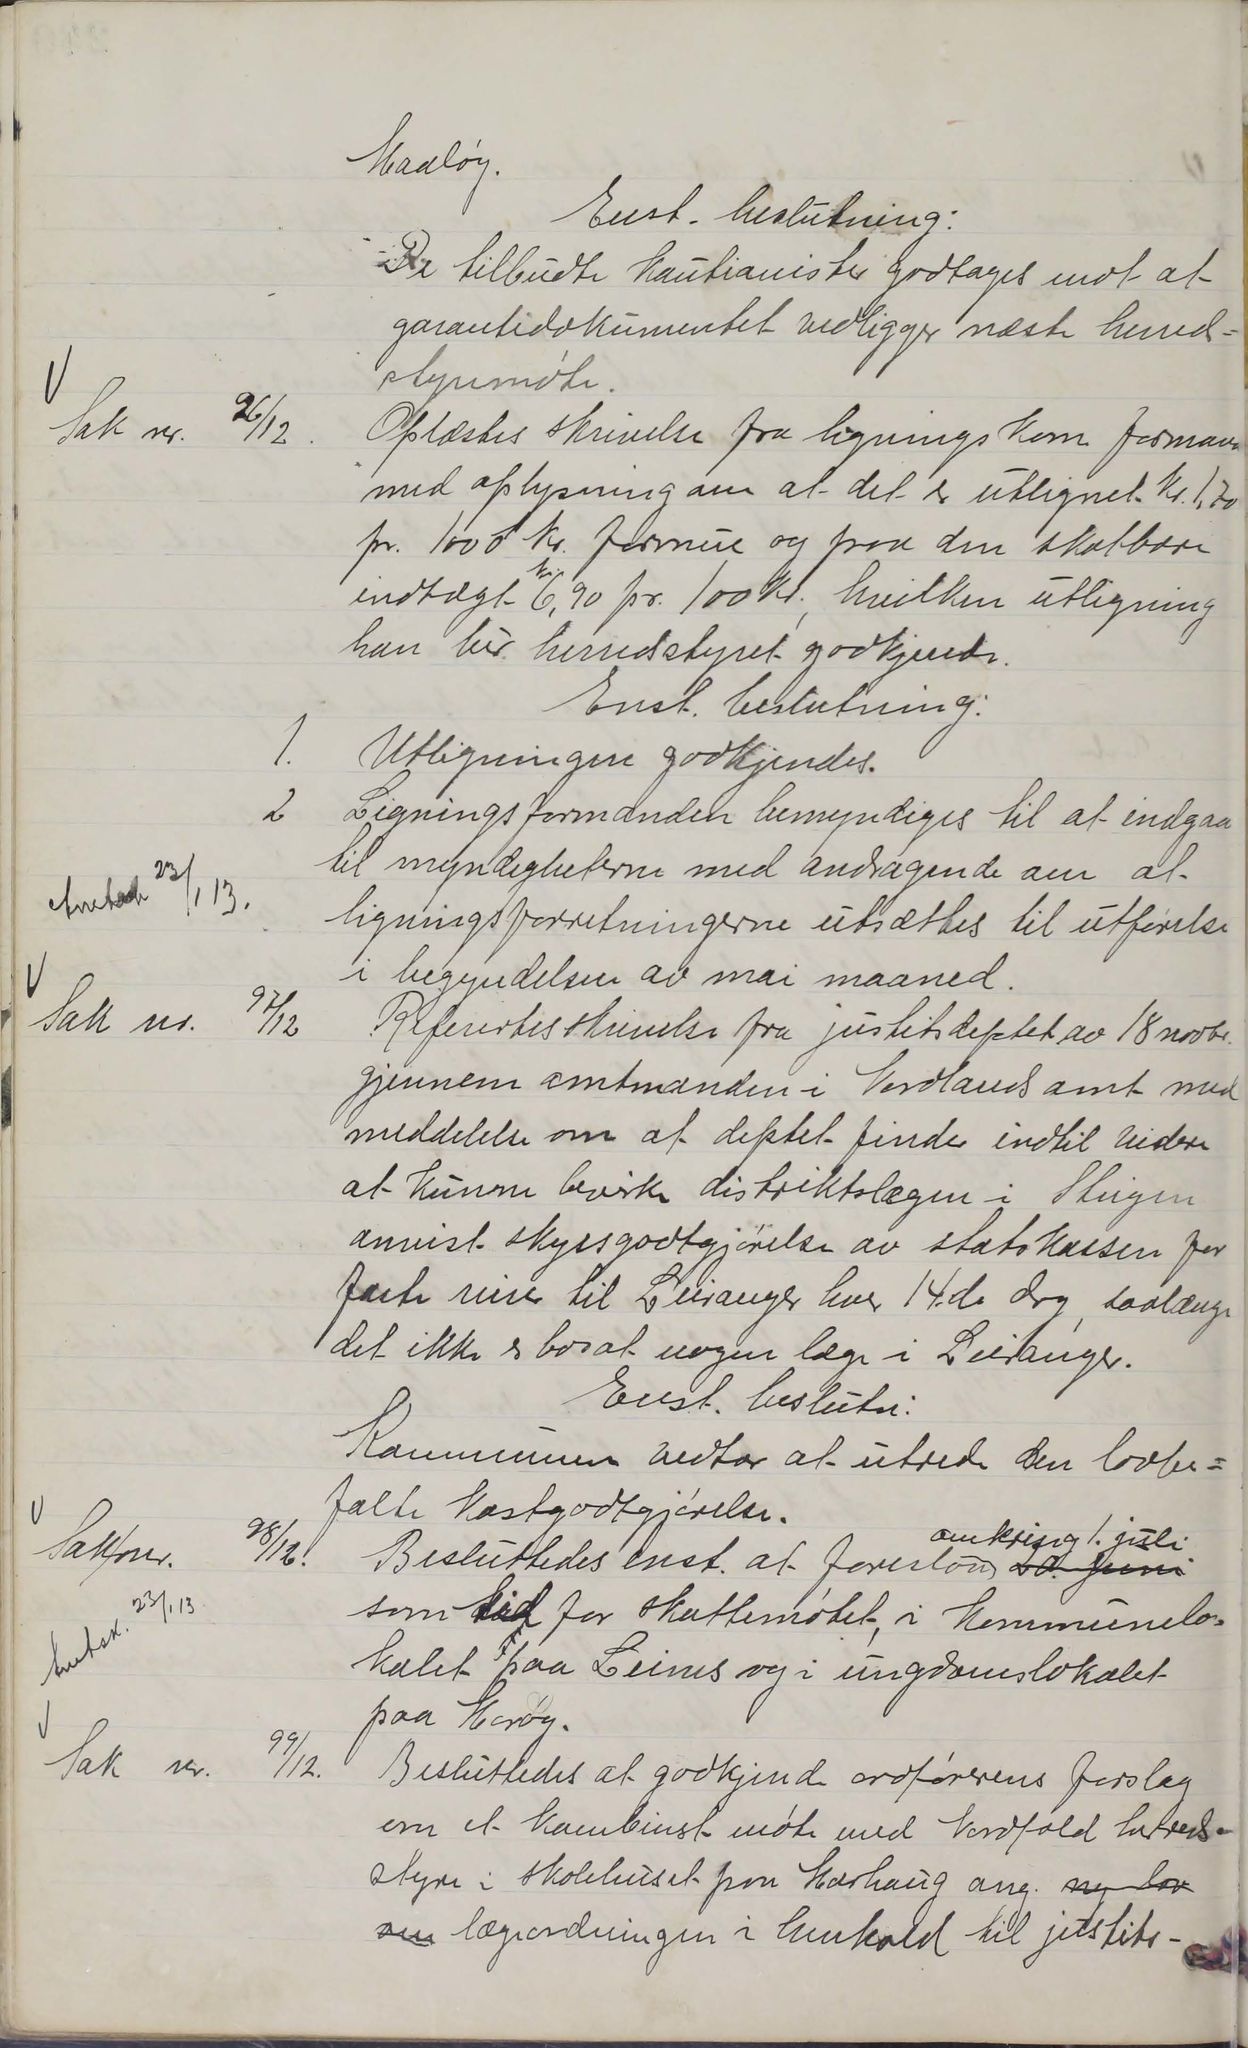 Maaløy.
Enst. beslutning:
De tilbudte kautianister godtages mot at
garantidokumentet vedligger næste herred-
styremøte.
Sak nr. 96/12. Oplæstes skrivelse fra ligningskom formann
med oplysning om at det er utlignet kr. 1,70
pr. 1000 kr. formue og paa den skatbare
indtægt kr. 6,90 pr. 100 kr., hvilken utligning
han ber herredstyret godkjende.
Enst. beslutning:
1. Utligningen godkjendes.
2 Ligningsformanden bemyndiges til at indgaa
til myndigheterne med andragende om at
23/1 13. ligningsforretningerne utsættes til utførelse
i begyndelsen av mai maaned.
Sak nr. 97/12 Refertes skrivelse fra justitsdeptet av 18 novbr.
gjennem amtmanden i Nordlands amt med
meddelelse om at deptet finder indtil videre
at kunne bevirke distriktslægen i Steigen
anvist skyssgodtgjørelse av statskassen for
faste reiser til Leiranger hver 14.de dag, saalænge
det ikke er bosat nogen læge i Leiranger.
Enst. beslutn:
Kommunen vedtar at utrede den lovbe-
falte kostgodtgjørelse.
Sak nr. 98/12. Besluttedes enst. at foreslaa omkring 1. juli
23/1 13 som tid for skattemøtet, i kommunelo-
kalet paa Leines og i ungdomslokalet
paa
Sak nr. 99/12. Besluttedes at godkjende ordførerens forslag
om et kombinert møte med Nordfold herreds-
styre i skolehuset paa Hashaug ang. ny lov
om lægeordningen i henhold til justits-